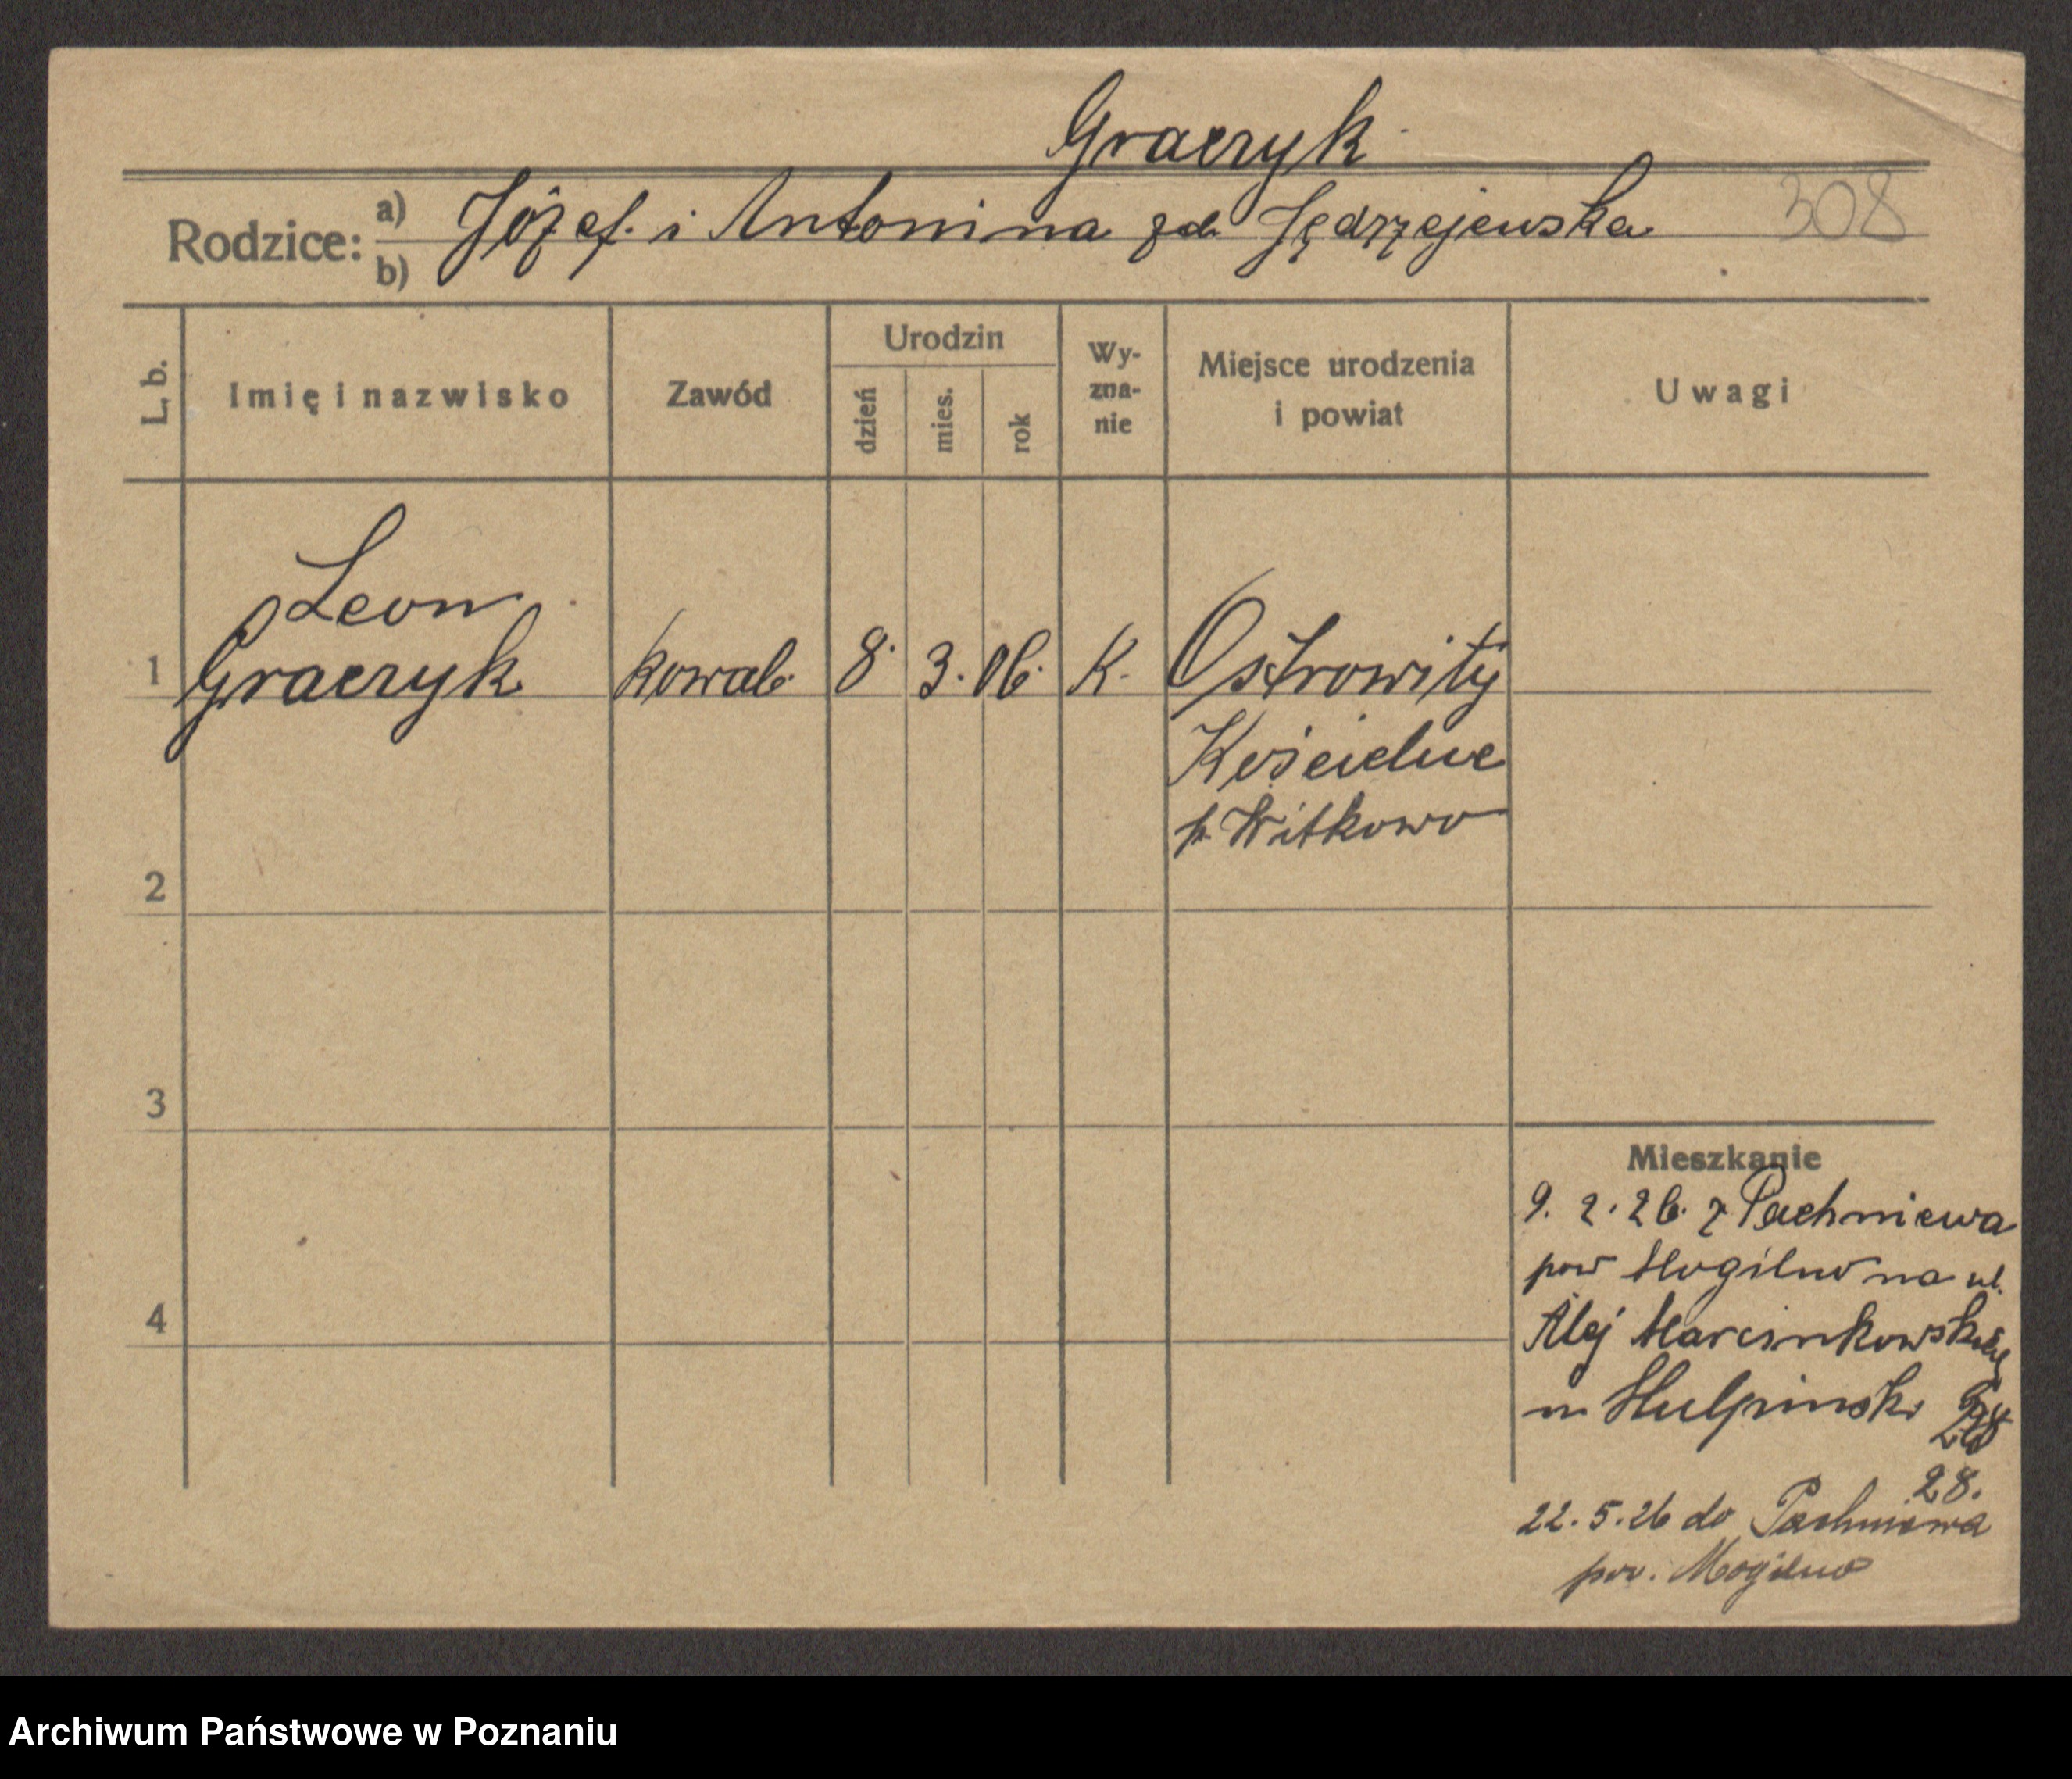 Graczyk
308
Rodzice: a) Józef. i Antonina zd. Jędrzejewska
b)
L. b.
Imię i nazwisko
Zawód
Urodzin
dzień
mies.
rok
Wy-
zna-
nie
Miejsce urodzenia
i powiat
Uwagi
Leon
1 Graczyk kowal. 8. 3. 06. K. Ostrowity
Kościelne
p. Witkowo
2
3
4
Mieszkanie
9. 2. 26. z Pachniewa
pow Mogilno na ul.
Alej Marcinkowskiej
28.
22. 5. 26 do Pachniewa
pow. Mogilno
Archiwum Państwowe w Poznaniu